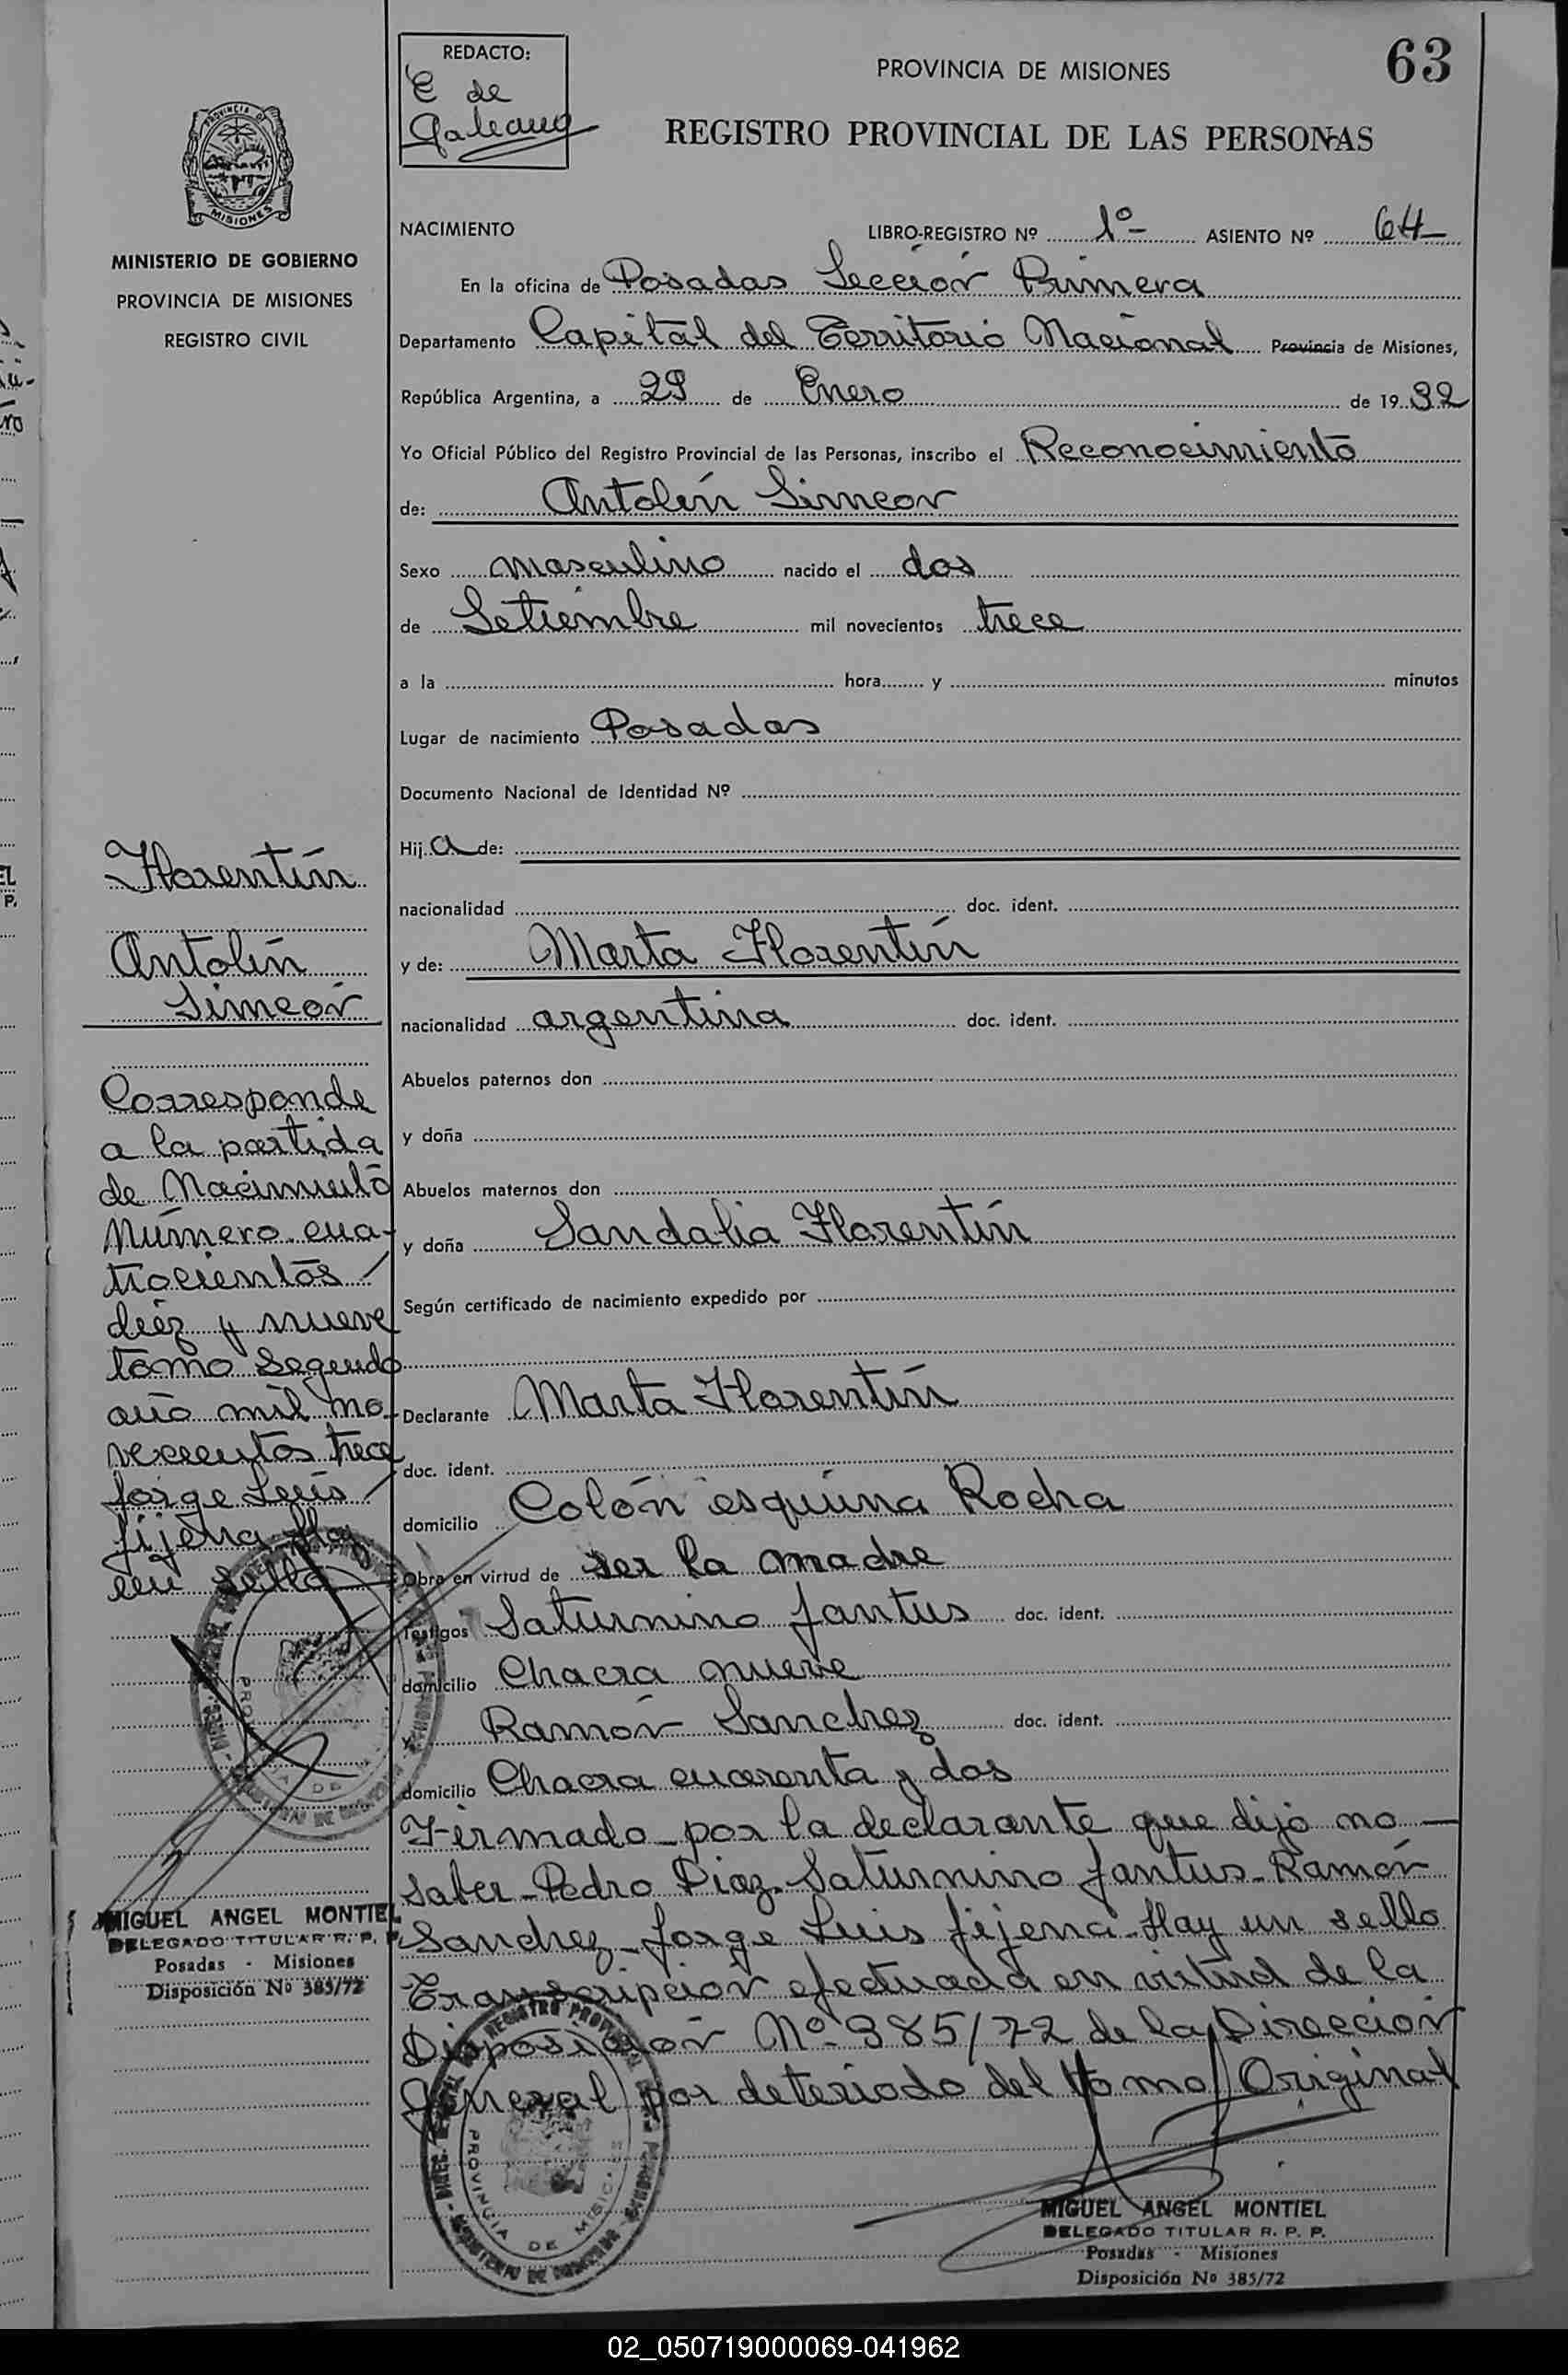 REDACTO:
E de
Galeano
PROVINCIA DE MISIONES
63
REGISTRO PROVINCIAL DE LAS PERSONAS
PROVINCIA DE
MISIONES
MINISTERIO DE GOBIERNO
PROVINCIA DE MISIONES
REGISTRO CIVIL
NACIMIENTO
LIBRO-REGISTRO Nº 1º ASIENTO Nº 64
En la oficina de Posadas Sección Primera
Departamento Capital del Territorio Nacional Provincia de Misiones,
República Argentina, a 29 de Enero de 1932
Yo Oficial Público del Registro Provincial de las Personas, inscribo el Reconocimiento
de: Antolín Simeón
Sexo masculino nacido el dos
de Setiembre mil novecientos trece
a la hora y minutos
Lugar de nacimiento Posadas
Documento Nacional de Identidad Nº
Hij a de:
nacionalidad doc. ident.
y de: Marta Florentín
nacionalidad argentina doc. ident.
Abuelos paternos don
y doña
Abuelos maternos don
y doña Sandalia Florentín
Según certificado de nacimiento expedido por
Declarante Marta Florentín
doc. ident.
domicilio Colón esquina Rocha
Obra en virtud de ser la madre
Testigos Saturnino Jantus doc. ident.
domicilio Chacra nueve
y Ramón Sanchez doc. ident.
domicilio Chacra cuarenta y dos
Firmado por la declarante que dijo no
saber - Pedro Diaz - Saturnino Jantus - Ramón
Sanchez - Jorge Luis Jijena - Hay un sello
Transcripción efectuada en virtud de la
Disposición Nº 385/72 de la Dirección
General por deteriodo del tomo Original
Florentín
Antolín
Simeón
Corresponde
a la partida
de Nacimiento
Número cua-
trocientos
diez y nueve
tomo segundo
año mil no-
vecientos trece
Jorge Luis
Jijena Hay
un sello
MIGUEL ANGEL MONTIEL
DELEGADO TITULAR R. P. P.
Posadas - Misiones
Disposición Nº 385/72
PROVINCIA DE MISIONES
MIGUEL ANGEL MONTIEL
DELEGADO TITULAR R. P. P.
Posadas - Misiones
Disposición Nº 385/72
02_050719000069-041962